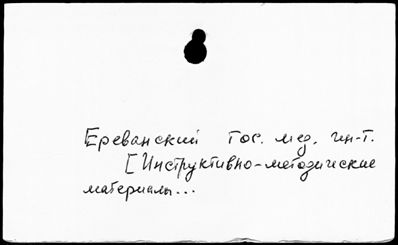 Ереванский гос. мед. ин-т.
[Инструктивно-методические
материалы...